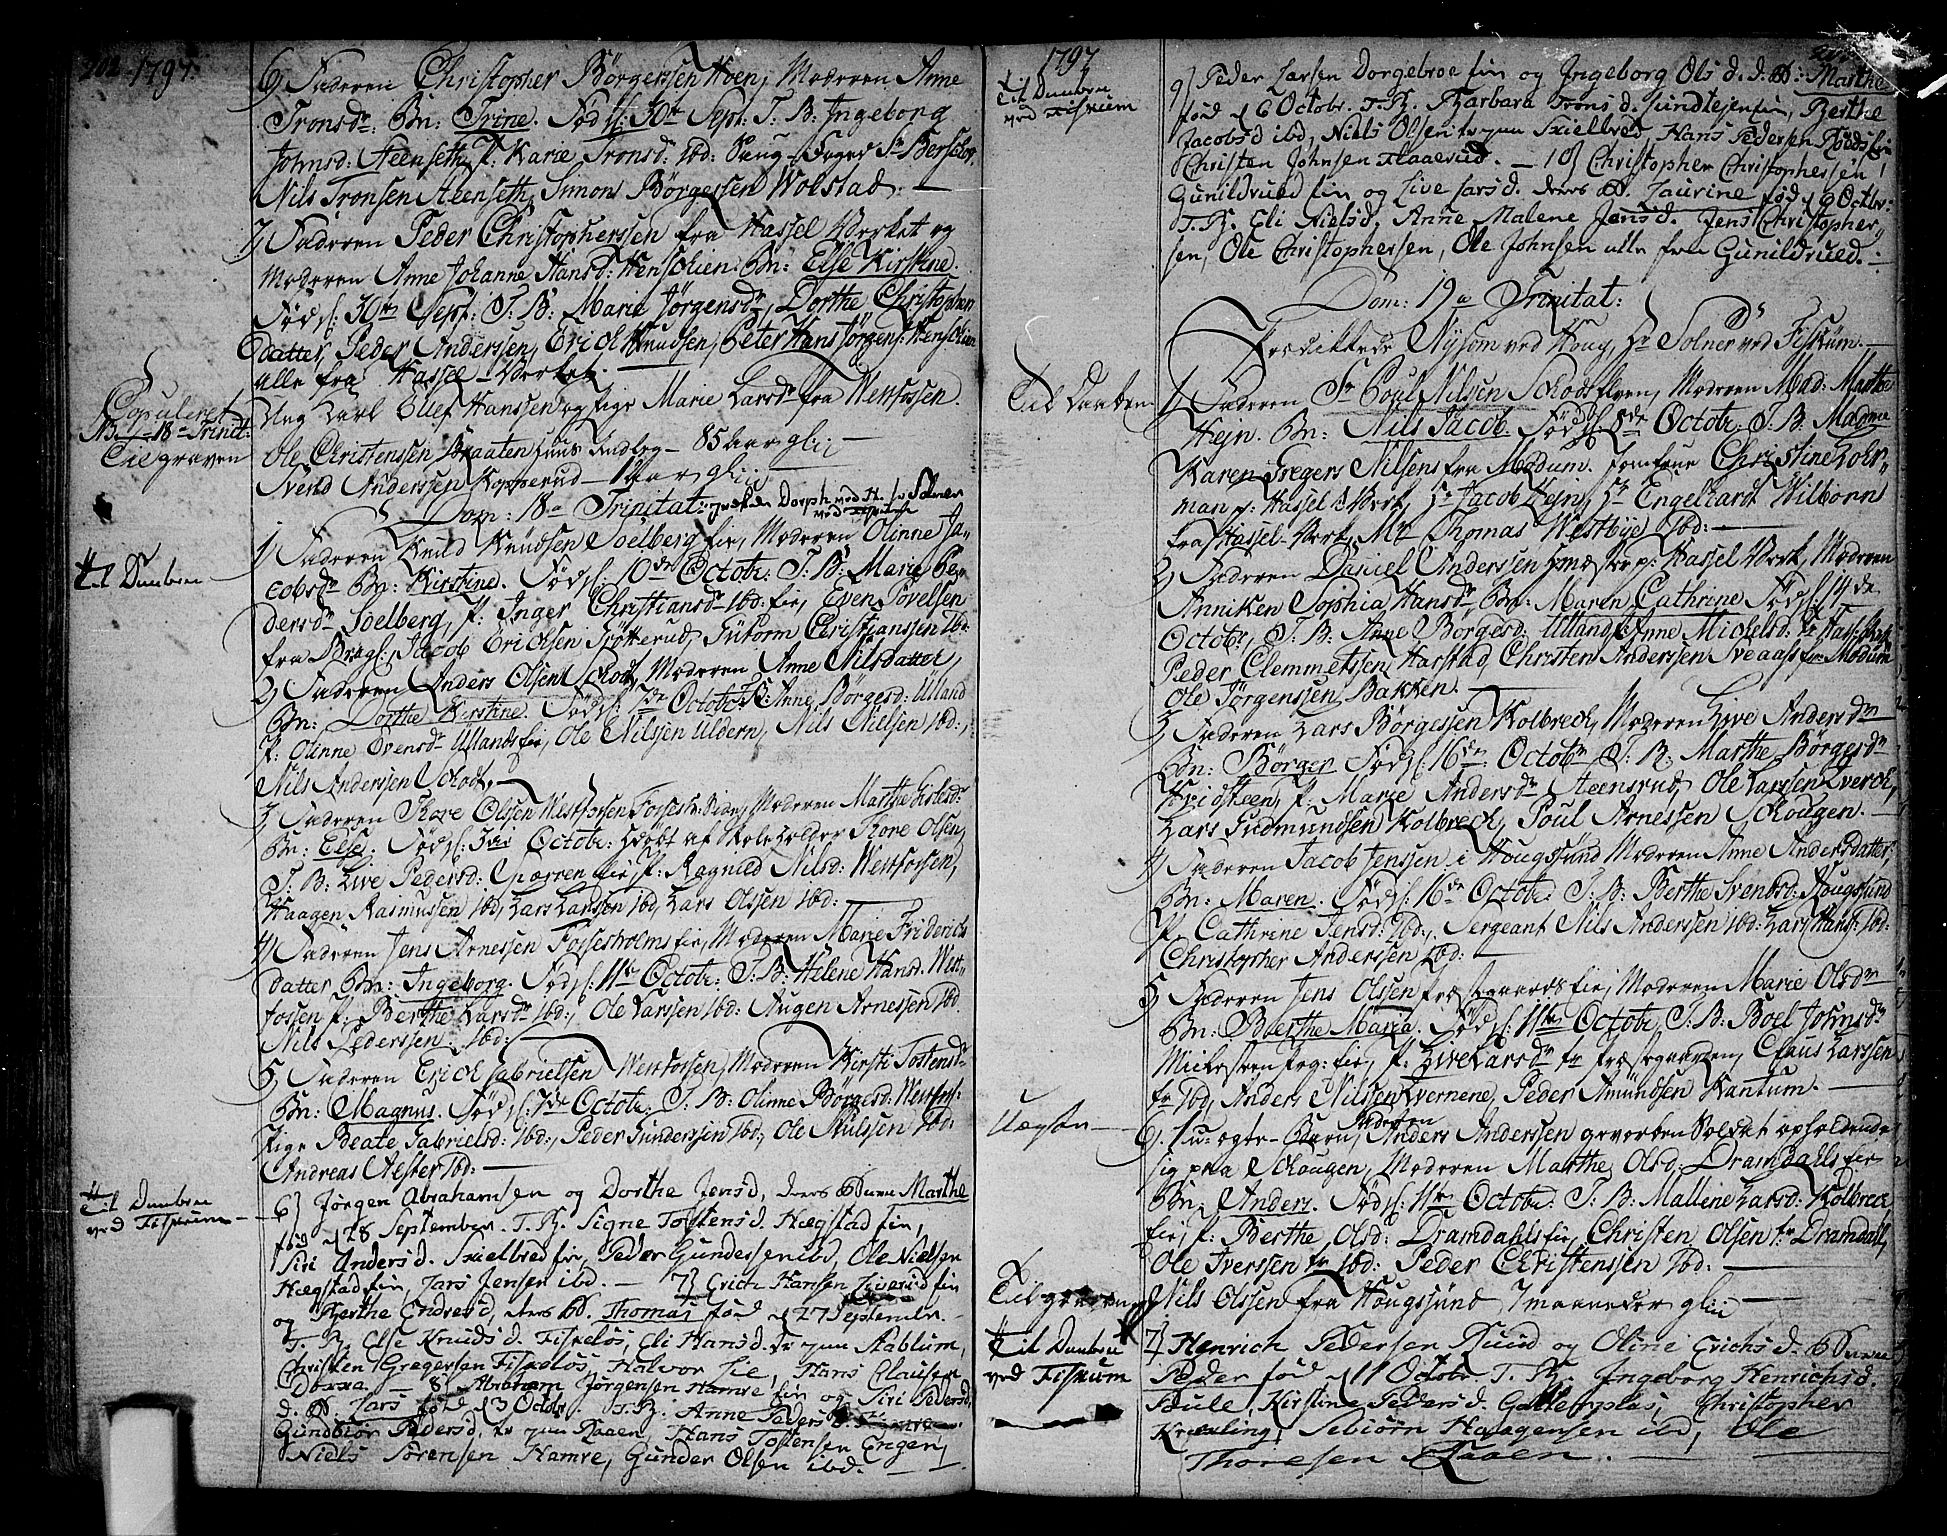 202 1797
6) Faderen Christopher Börgerssen Hoen, Moderen Anne
Tronsdr: Bn: Trine. Föd s: 30te Sept: T. B: Ingeborg
Johnsd: Steenseth, p: Karie Tronsd: ibd:
Nils Tronsen Steenseth, Simon Börgerssen Wolstad: —
7) Faderen Peder Christopherssen fra Hassel Verket og
Moderen Anne Johanne Hansd: Henschien. Bn: Else Kirstine.
Föd s: 30te Sept: T. B: Marie Jörgensdr, Dorthe Christopher
datter, Peder Anderssen, Erich Knudsen, Peter Hans Jörgens: Henschien
alle fra Hassel-Verket. —
Copuleret
Ung Karl Ellef Hanssen og Pige Marie Larsdr fra Westfossen.
NB — 18 Trinit:
Til graven
Ole Christenssen Braaten 85 Aar gl: —
Svend Anderssen Kopperud — 1 Aar gl: —
Dom: 18a Trinitat: Dorph ved H. hr Solner
ved Fiskum
Til Daaben
1) Faderen Knud Knudsen Soelberg eie, Moderen Olinne Ja-
cobsdr Bn: Kirstine. Föd s: 10de Octobr: T. B: Marie Pe-
dersdr Soelberg, p: Inger Christiansdr ibd: eie, Even Povelsen
fra Brags: Jacob Erichsen Trötterud, Gutorm Christianssen ibd:
2) Faderen Anders Olsen Schodt, Moderen Anne Nilsdatter,
Bn: Dorthe Kirstine. Föd s: 7de Octobr: T. B: Anne Börgesd: Ulland
p: Olinne Evensdr Ullands eie, Ole Nilssen Uldern, Nils Nielsen ibd:,
Nils Anderssen Schodt. —
3) Faderen Thore Olsen Westfossen Fosses: Side, Moderen Marthe Gislesd:
Bn: Else. Föd s: 3die Octobr: döbt af Skoleholder Thore Olsen,
T. B: Live Pedersd: eie, p: Ragnild Nilsd: Westfossen,
Haagen Rasmussen ibd, Lars Larssen ibd, Lars Olssen ibd: —
4) Faderen Jens Arnessen Fossesholms eie, Moderen Marie Friderichs
datter Bn: Ingeborg. Föd s: 11te Octobr: T. B: Helene Hansd: West-
fossen p: Berthe Larsdr ibd:, Ole Larssen ibd: Augen Arnessen ibd
Nils Pederssen: ibd: —
5) Faderen Erich Gabrielsen Westfossen, Moderen Kirsti Tostensdr
Bn: Magnus. Föd s: 7de Octobr: T. B: Olinne Börgesd: Westfos:
Pige Beate Gabrielsd: ibd:, Peder Gunderssen ibd:, Ole Nulssen ibd:
Andreas Aester ibd: —
Til Daaben
ved Fiskum —
6) Jörgen Abrahamsen og Dorthe Jensd, deres B. Marthe
föd d 28 September. T. B. Signe Tostensd. Hægstad eie,
Siri Andersd. Skielbred eie, Peder Gundersen ibd, Ole Nielsen
Hægstad eie, Lars Jensen ibd. — 7) Erich Hansen Liverud eie
og Berthe Endresd, deres B. Thomas föd d 27 Septembr.
T. B. Else Knudsd. Fiskelös, Eli Hansd. Stablum,
Christen Gregersen Fiskelös, Halvor Lie, Hans Clausen
Dorra — 8) Abraham Jörgensen Hamre eie og Siri Pedersd,
d. B. Lars föd d 3 Octobr. T. B. Anne Pedersd. Hamre.
Gundbiör Pedersd, Raaen, Hans Tostensen Engen,
Niels Sörensen Hamre, Gunder Olsen ibd. —
1797
Til Daaben
ved Fiskum
9) Peder Larsen Dorgebroe eie og Ingeborg Ols d. d. B: Marthe
föd d 6 Octobr. T. B. Barbara Trons d. Sundtejen eie, Berthe
Jacobsd ibd, Niels Olsen Skielbred, Hans Pedersen Röds eie
Christen Johnsen Flaaerud. — 10) Christopher Christophersen
Gunildrued eie og Live Larsd. deres B. Laurine föd d 6 Octbr.
T. B. Eli Nielsd, Anne Malene Jensd. Jens Christopher-
sen, Ole Christophersen, Ole Johnsen alle fra Gunildrued. —
Dom: 19a Trinitat:
Prædikede Nysom ved Houg, hr Solner ved Fiskum. —
Til Daaben
1) Faderen Sr Poul Nilsen Schods elven, Moderen Mad: Marthe
Hejn. Bn: Nils Jacob. Föd s: 8de Octobr: T. B. Madme
Karen Gregers Nilsens fra Modum. Jomfrue Christine Lohr-
man p: Hassel Verk, Hr Jacob Hejn, Hr Engelhardt Wilborn
fra Hassel-Verk, Mr Thomas Westbye ibd: —
2) Faderen Daniel Anderssen p: Hassel Verk, Moderen
Anniken Sophia Hansdr, Bn: Maren Cathrine Föd s: 14de
Octobr, T. B: Anne Börgesd: Ulland, Anne Michelsd: fr Hass: Verk
Peder Clemmetssen Harstad, Christen Anderssen Sveaas fr Modum
Ole Jörgenssen Bakken. —
3) Faderen Lars Börgessen Kolbreck, Moderen Live Andersdr
Bn: Börger Föd s: 16de Octobr T. B: Marthe Börgesdr
Hvidsteen, p: Marie Andersdr Steensrud, Ole Larssen Lverch,
Lars Gudmundsen Kolbreck, Poul Arnessen Schougen. —
4) Faderen Jacob Jenssen i Hougsund Moderen Anne Andersdatter
Bn: Maren. Föd s: 16de Octobr: T. B: Berthe Svendsd: Hougsund
p: Cathrine Jensd: ibd:, Sergeant Nils Anderssen ibd: Lars Hans: ibd:
Christopher Anderssen ibd: —
5) Faderen Jens Olssen præstegaards eie, Moderen Marie Olsdr
Bn: Berthe Maria. Föd s: 11te Octobr, T. B: Boel Johnsdr
Mickelsteen eie, p: Live Larsdr fr præstegaarden, Claus Larssen
fr ibd, Anders Nilssen Kvernene, Peder Amundsen Kantum. —
Uægte —
6) 1 u-ægte-Barn, Faderen Anders Anderssen geworben Soldat opholdende
sig paa Schougen, Moderen Marthe Olsd: Dramdahls eie
Bn: Anders. Föd s: 11te Octobr: T. B: Mallene Larsd: Kolbreck
eie, p: Berthe Olsd: Dramdahls eie, Christen Olssen fr Dramdahl,
Ole Iverssen fr ibd: Peder Christenssen ibd: —
Til graven
Nils Olssen fra Hougssund 7 maaneder gl: —
Til Daaben
ved Fiskum
7) Henrich Pedersen Ruud og Oline Erichs d. B.
Peder föd d 11 Octobr T. B. Ingeborg Henrichsd.
Foule, Kirstine Pedersd. Gollerplas, Christopher
Krekling, Sebiörn Haagensen ibd, Ole
Thoresen Aaen. —